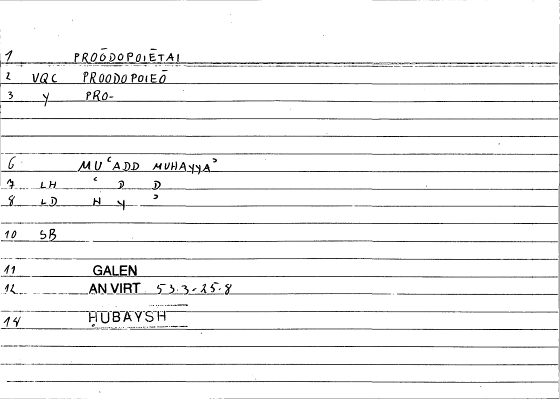 1 PROŌDOPOIĒTAI
2 VQC PROODOPOIEŌ
3 Y PRO-
6 MUʿADD MUHAYYAʾ
7 LH ʿ D D
8 LD H Y ʾ
10 SB
11 GALEN
12 AN VIRT 53.3-25.8
14 ḤUBAYSH